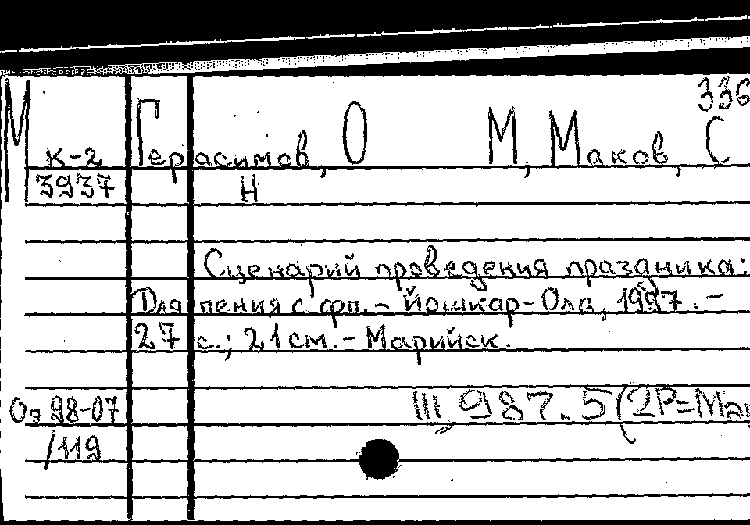 336
М Герасимов, О М, Маков, С
К-2
3937 Н
Сценарий проведения праздника:
Для пения с фп. - Йошкар-Ола, 1997. -
27 с.; 21 см. - Марийск.
Оз 98-07 III, 987.5(2Р=Мар
/119